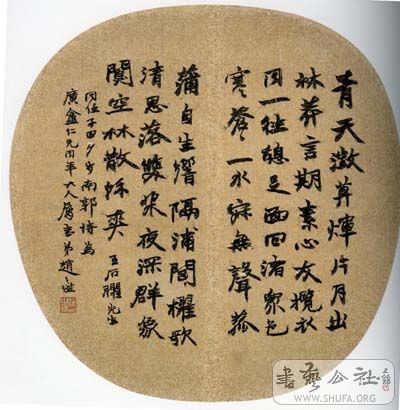 青天澂暮煇片月出
林莽言期素心友攬衣
同一往憩足面回渚眾色
寒蒼一水寂無聲菰
蒲自生響隔浦聞櫂歌
清思落雙槳夜深群象
闃空林散疎爽 王石臞先生
同伍子田夕步南郭詩為
廣盦仁兄同年大人屬愚弟趙
書藝公社
WWW.SHUFA.ORG